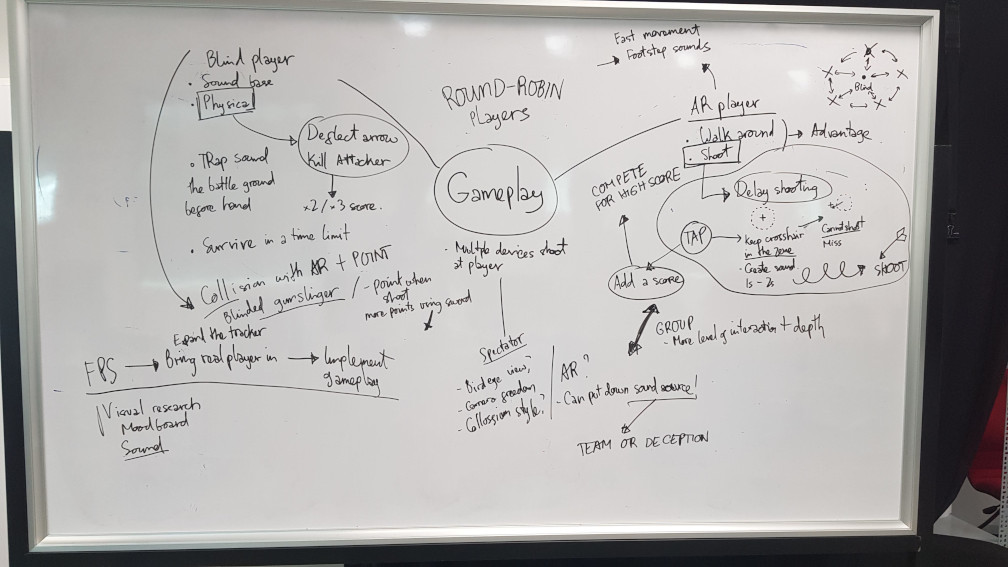 Blind player
• Sound base
• Physical
Deflect arrow
Kill Attacher
x2/x3 score.
• TRap sound
the battle ground
before hand
• Survive in a time limit
Collision with AR + POINT
Blinded gunslinger / - point when
shoot
more points using sword
Expand the tracker
FPS → Bring real player in → Implement
gameplay
Visual research
Moodboard
Sound
ROUND-ROBIN
players
Gameplay
• Multiple devices shoot
at player
Spectator
- Bird eye view,
- Camera freedom
- Collossium style?
AR?
- Can put down sound source!
TEAM OR DECEPTION
Fast movement
→ Footstep sounds
AR player
• Walk around
• Shoot
→ Advantage
Blind
COMPETE
FOR HIGHSCORE
Delay shooting
TAP
→ Keep crosshair
in the zone
• Create sound
1s - 2s
Cannot shoot
Miss
SHOOT
Add a score
GROUP
- More level of interaction + depth